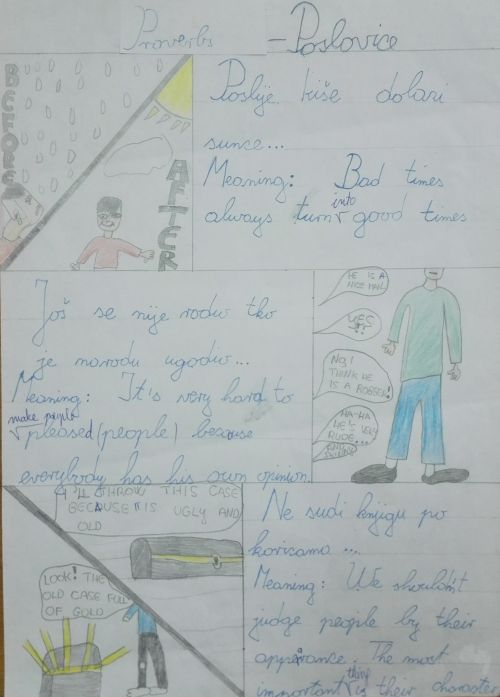 Proverbs - Poslovice
BEFORE
AFTER
Poslije kiše dolazi
sunce...
Meaning: Bad times
always turn into good times
Još se nije rodio tko
je narodu ugodio...
Meaning: It's very hard to
make people
pleased (people) because
everybody has his own opinion.
HE IS A
NICE MAN.
YES
NO! I
THINK HE
IS A ROBBER!
HA-HA
HE'S VERY
RUDE...
THROW THIS CASE
BECAUSE IT IS UGLY AND
OLD
LOOK! THE
OLD CASE FULL
OF GOLD
Ne sudi knjigu po
koricama...
Meaning: We shouldn't
judge people by their
appearance. The most
important thing is their character